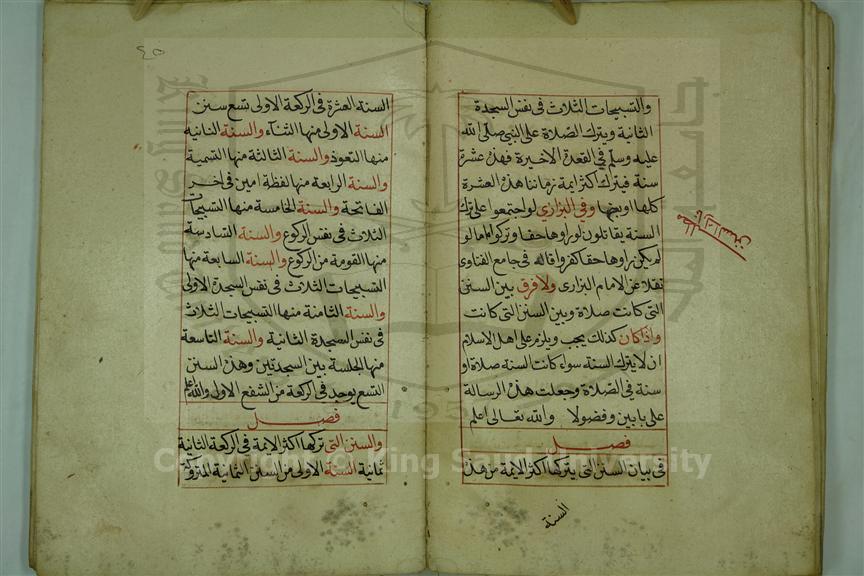 والتسبيحات الثلاث فى نفس السجدة
الثانية ويترك الصلاة على النبي صلى الله
عليه وسلم فى القعدة الاخيرة فهذه عشرة
سنة فيترك اكثر ايمة زماننا هذه العشرة
كلها او بعضها وفى البزازى لو اجتمعوا على ترك
السنة يقاتلون لو راوها حقا وتركوا اما لو
لم يكن راوها حقا كفروا قاله فى جامع الفتاوى
نقلا عن الامام البزازى ولا فرق بين السنن
التى كانت صلاة وبين السنن التى كانت
واذا كان كذلك يجب ويلزم على اهل الاسلام
ان لا يترك السنة سواء كانت السنة صلاة او
سنة فى الصلاة وجعلت هذه الرسالة
على بابين وفصولا والله تعالى اعلم
فصل
فى بيان السنن التى يتركها اكثر الايمة من هذه
السنة
مطلب تارك السنن
٤٥
السنة العشرة فى الركعة الاولى تسع سنن
السنة الاولى منها الثناء والسنة الثانية
منها التعوذ والسنة الثالثة منها التسمية
والسنة الرابعة منها لفظة امين فى اخر
الفاتحة والسنة الخامسة منها التسبيحات
الثلاث فى نفس الركوع والسنة السادسة
منها القومة من الركوع والسنة السابعة منها
التسبيحات الثلاث فى نفس السجدة الاولى
والسنة الثامنة منها التسبيحات الثلاث
فى نفس السجدة الثانية والسنة التاسعة
منها الجلسة بين السجدتين وهذه السنن
التسع يوجد فى الركعة من الشفع الاول والله اعلم
فصل
والسنن التى تركها اكثر الايمة فى الركعة الثانية
ثمانية السنة الاولى من السنن الثمانية المتروكة
Copyright © King Saud University